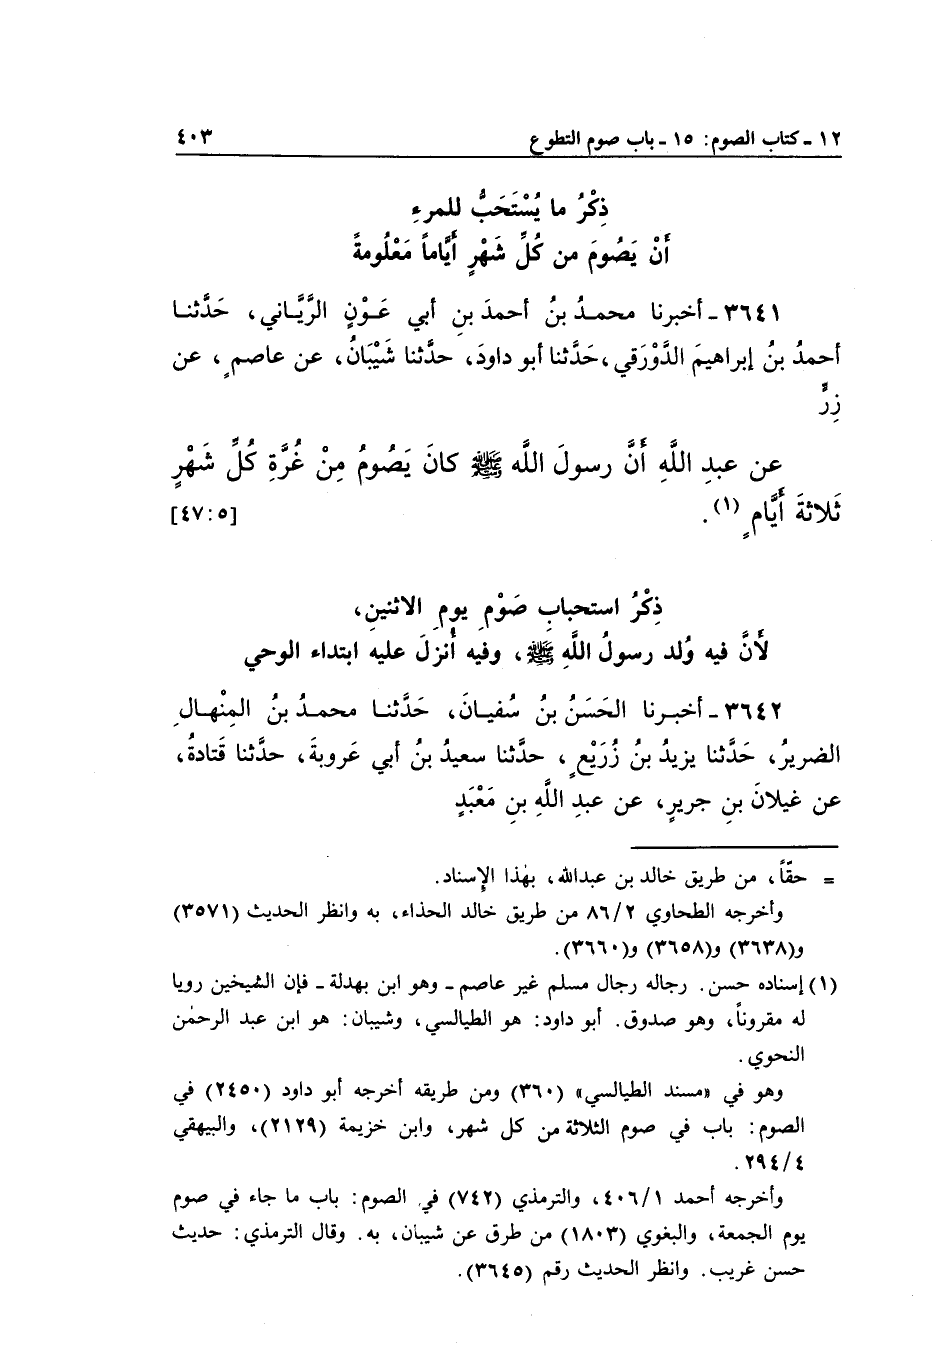 ١٢ ـ كتاب الصوم: ١٥ ـ باب صوم التطوع ٤٠٣
ذِكْرُ ما يُسْتَحَبُّ للمرءِ
أَنْ يَصُومَ من كُلِّ شَهْرٍ أَيَّاماً مَعْلُومةً
٣٦٤١ ـ أخبرنا محمدُ بنُ أحمدَ بنِ أبي عَوْنٍ الرَّيَّاني، حَدَّثنا
أحمدُ بنُ إبراهيمَ الدَّوْرَقي، حَدَّثنا أبو داودَ، حدَّثنا شَيْبَانُ، عن عاصمٍ، عن
زِرٍّ
عن عبدِ اللَّهِ أَنَّ رسولَ اللَّه ﷺ كانَ يَصُومُ مِنْ غُرَّةِ كُلِّ شَهْرٍ
ثَلاثةَ أَيَّامٍ (١). [٤٧:٥]
ذِكْرُ استحبابِ صَوْمِ يومِ الاثنينِ،
لأَنَّ فيه وُلد رسولُ اللَّهِ ﷺ، وفيه أُنزلَ عليه ابتداء الوحي
٣٦٤٢ ـ أخبرنا الحَسَنُ بنُ سُفيانَ، حَدَّثنا محمدُ بنُ المِنْهالِ
الضريرُ، حَدَّثنا يزيدُ بنُ زُرَيْعٍ، حدَّثنا سعيدُ بنُ أبي عَروبةَ، حدَّثنا قَتادةُ،
عن غيلانَ بنِ جريرٍ، عن عبدِ اللَّهِ بنِ مَعْبَدٍ
= حقّاً، من طريق خالد بن عبدالله، بهٰذا الإسناد.
وأخرجه الطحاوي ٨٦/٢ من طريق خالد الحذاء، به وانظر الحديث (٣٥٧١)
و(٣٦٣٨) و(٣٦٥٨) و(٣٦٦٠).
(١) إسناده حسن. رجاله رجال مسلم غير عاصم ـ وهو ابن بهدلة ـ فإن الشيخين رويا
له مقروناً، وهو صدوق. أبو داود: هو الطيالسي، وشيبان: هو ابن عبد الرحمٰن
النحوي.
وهو في «مسند الطيالسي» (٣٦٠) ومن طريقه أخرجه أبو داود (٢٤٥٠) في
الصوم: باب في صوم الثلاثة من كل شهر، وابن خزيمة (٢١٢٩)، والبيهقي
٢٩٤/٤.
وأخرجه أحمد ٤٠٦/١، والترمذي (٧٤٢) في الصوم: باب ما جاء في صوم
يوم الجمعة، والبغوي (١٨٠٣) من طرق عن شيبان، به. وقال الترمذي: حديث
حسن غريب. وانظر الحديث رقم (٣٦٤٥).